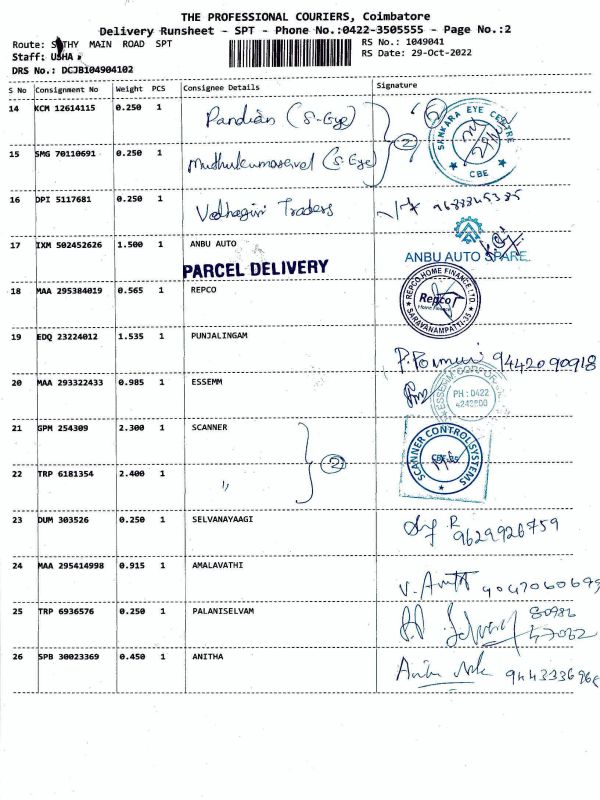 THE PROFESSIONAL COURIERS, Coimbatore
Delivery Runsheet - SPT - Phone No.:0422-3505555 - Page No.:2
Route: SATHY MAIN ROAD SPT
RS No.: 1049041
Staff: USHA
RS Date: 29-Oct-2022
DRS No.: DCJB104904102
S No Consignment No Weight PCS Consignee Details Signature
14 KCM 12614115 0.250 1 Pandian (S-Eye)
SANKARA EYE CENTRE
CBE
15 SMG 70110691 0.250 1 Muthukumaravel (S-Eye) 2
16 DPI 5117681 0.250 1 Vedhagiri Traders
17 IXM 502452626 1.500 1 ANBU AUTO
ANBU AUTO SPARE
PARCEL DELIVERY
18 MAA 295384019 0.565 1 REPCO
REPCO HOME FINANCE LTD
Repco
Home Finance
SARAVANAMPATTI-35
19 EDQ 23224012 1.535 1 PUNJALINGAM
9442090918
20 MAA 293322433 0.985 1 ESSEMM
PH : 0422
21 GPM 254309 2.300 1 SCANNER
SCANNER CONTROL SYSTEMS
22 TRP 6181354 2.400 1 〃 2
23 DUM 303526 0.250 1 SELVANAYAAGI
9629926759
24 MAA 295414998 0.915 1 AMALAVATHI
25 TRP 6936576 0.250 1 PALANISELVAM
26 SPB 30023369 0.450 1 ANITHA